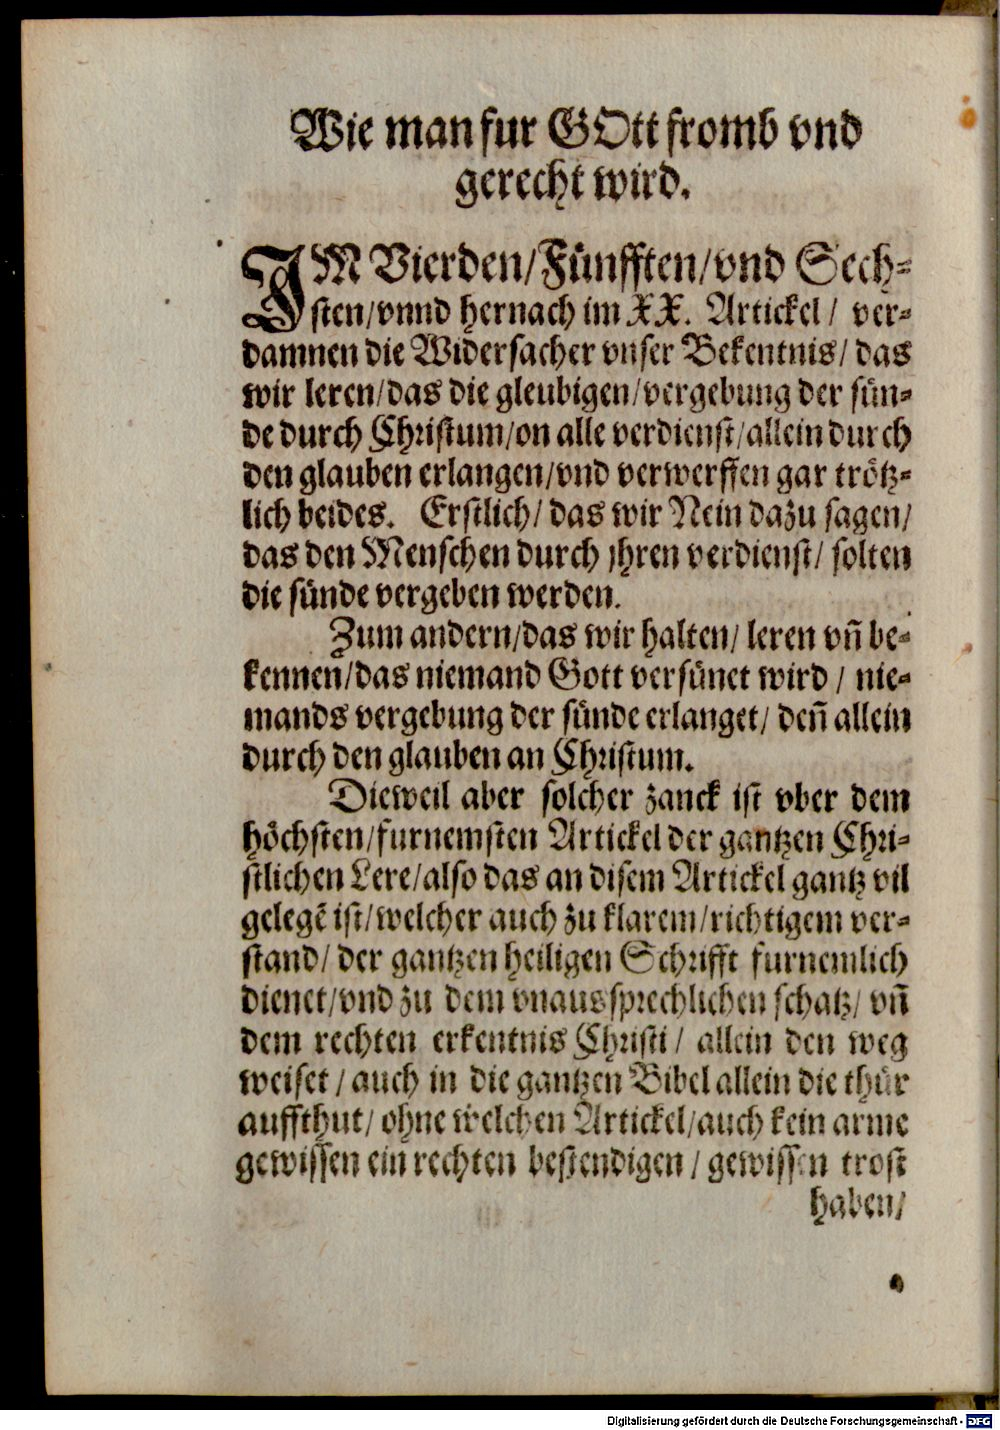 Wie man fur GOtt fromb vnd
gerecht wird.
IM Vierden/Fünfften/vnd Sech-
sten/vnnd hernach im XX. Artickel/ ver-
damnen die Widersacher vnser Bekentnis/ das
wir leren/das die gleubigen/vergebung der sün-
de durch Christum/on alle verdienst/allein durch
den glauben erlangen/vnd verwerffen gar trötz-
lich beides. Erstlich/ das wir Nein dazu sagen/
das den Menschen durch jhren verdienst/ solten
die sünde vergeben werden.
Zum andern/das wir halten/ leren vñ be-
kennen/das niemand Gott versünet wird/ nie-
mands vergebung der sünde erlanget/ deñ allein
durch den glauben an Christum.
Dieweil aber solcher zanck ist vber dem
höchsten/furnemsten Artickel der gantzen Chri-
stlichen Lere/also das an disem Artickel gantz vil
gelegẽ ist/welcher auch zu klarem/richtigem ver-
stand/ der gantzen heiligen Schrifft furnemlich
dienet/vnd zu dem vnaussprechlichen schatz/ vñ
dem rechten erkentnis Christi/ allein den weg
weiset/ auch in die gantzen Bibel allein die thür
auffthut/ ohne welchen Artickel/auch kein arme
gewissen ein rechten bestendigen/ gewissen trost
haben/
Digitalisierung gefördert durch die Deutsche Forschungsgemeinschaft - DFG